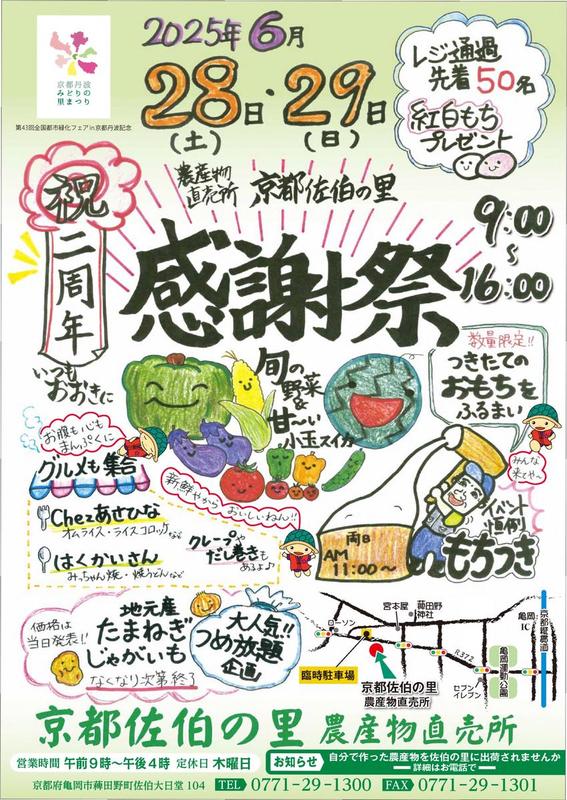 2025年6月
28日・29日
(土) (日)
レジ通過
先着50名
紅白もち
プレゼント
京都丹波
みどりの
里まつり
第43回全国都市緑化フェアin京都丹波記念
農産物
直売所
京都佐伯の里
9:00
~
16:00
祝二周年
感謝祭
いつも
おおきに
旬の
野菜
&
甘〜い
小玉スイカ
数量限定!!
つきたての
おもちを
ふるまい
みんな
来てや〜
お腹も心も
まんぷくに
グルメも集合
新鮮やから おいしいねん!!
Chezあさひな
オムライス・ライスコロッケなど
はくかいさん
みっちゃん焼・焼うどんなど
クレープや
だし巻きも
あるよ♪
両日
AM
11:00〜
イベント
恒例
もちつき
価格は
当日発表!!
地元産
たまねぎ
じゃがいも
なくなり次第終了
大人気!!
つめ放題
企画
ローソン
宮本屋
薭田野
神社
亀岡
IC
京都縦貫道
R372
臨時駐車場
京都佐伯の里
農産物直売所
セブン
イレブン
亀岡運動公園
京都佐伯の里 農産物直売所
営業時間 午前9時〜午後4時 定休日 木曜日
お知らせ 自分で作った農産物を佐伯の里に出荷されませんか
詳細はお電話で
京都府亀岡市薭田野町佐伯大日堂 104 TEL 0771-29-1300 FAX 0771-29-1301